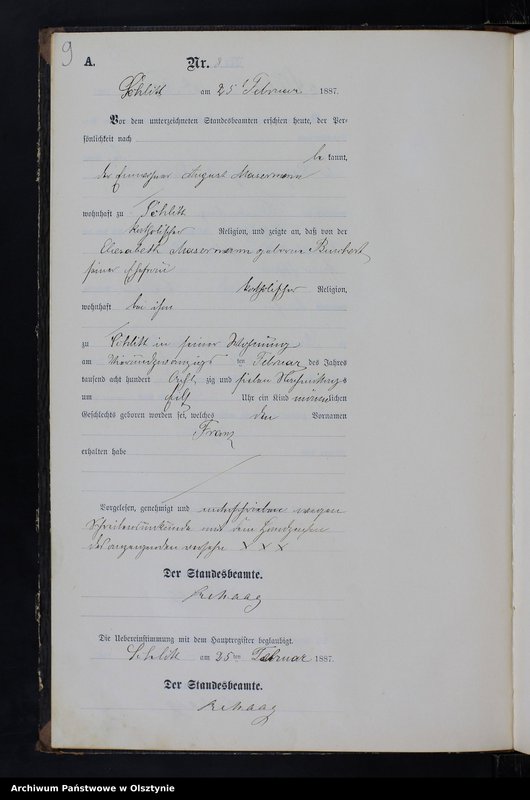 9
A.
Nr. 8
Schlitt am 25t Februar 1887.
Vor dem unterzeichneten Standesbeamten erschien heute, der Per-
sönlichkeit nach
be kannt,
der Einwohner August Masermann
wohnhaft zu Schlitt
katholischer Religion, und zeigte an, daß von der
Elisabeth Masermann geborne
seiner Ehefrau
katholischer Religion,
wohnhaft bei ihm
zu Schlitt in seiner Wohnung
am Vierundzwanzigs ten Februar des Jahres
tausend acht hundert Acht zig und sieben Nachmittags
um Uhr ein Kind männlichen
Geschlechts geboren worden sei, welches den Vornamen
Franz
erhalten habe
Vorgelesen, genehmigt und unterschrieben wegen
Schreibensunkunde mit dem Handzeichen
des anzeigenden versehn X X X
Der Standesbeamte.
Rehaag
Die Uebereinstimmung mit dem Hauptregister beglaubigt.
Schlitt am 25 ten Februar 1887.
Der Standesbeamte.
Rehaag
Archiwum Państwowe w Olsztynie